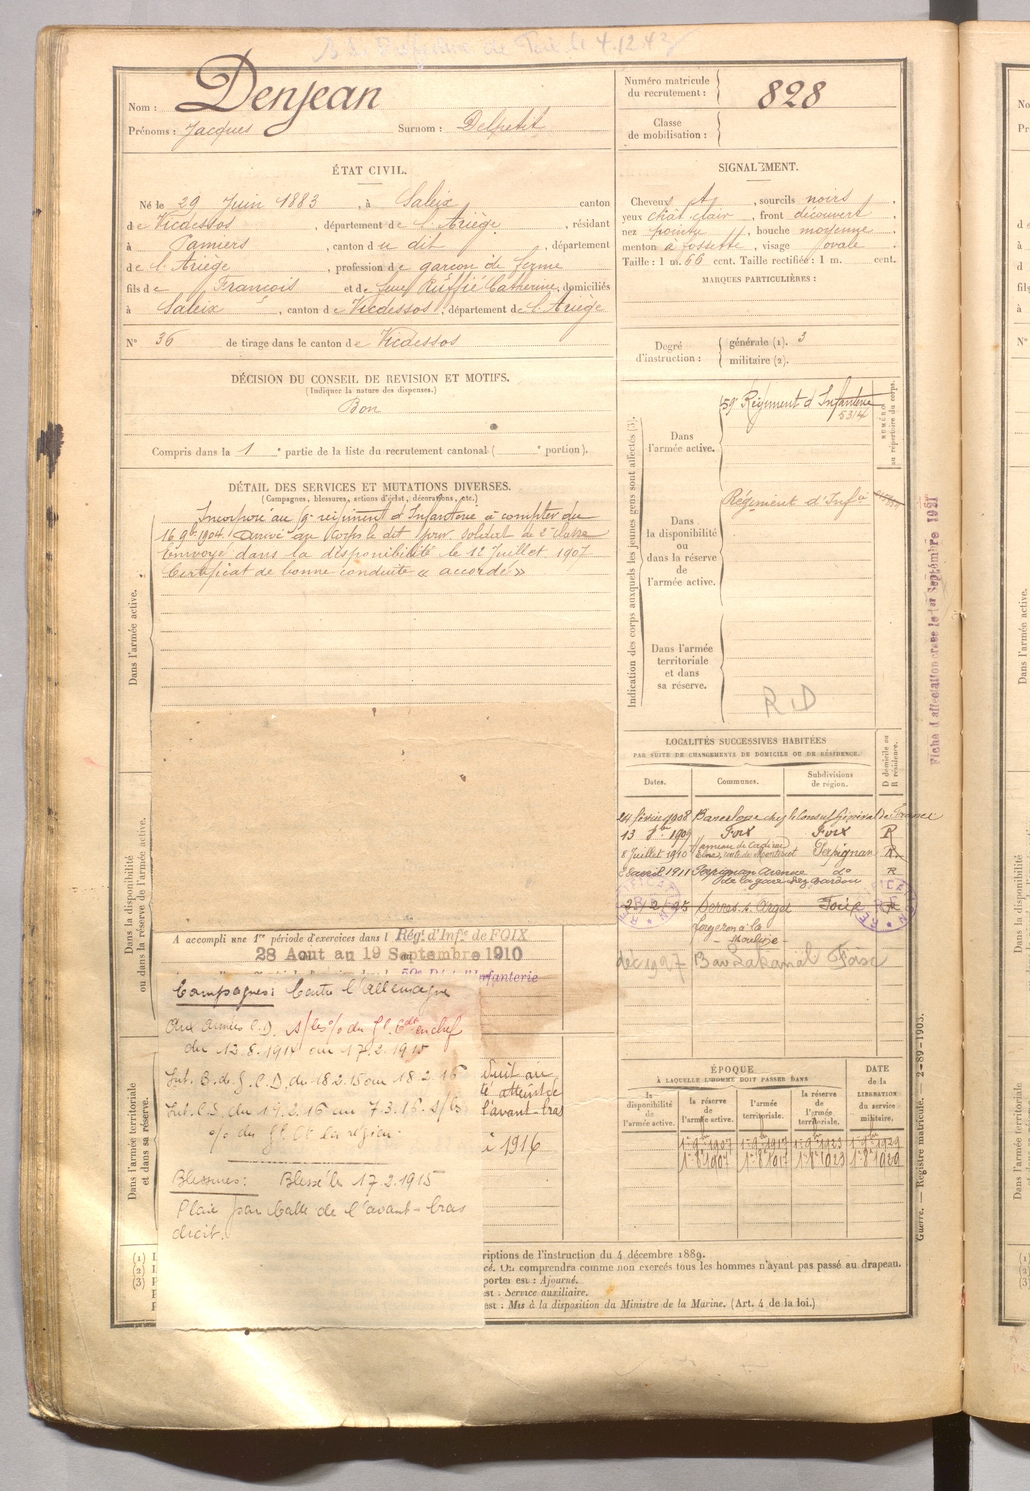 Nom : Denjean
Prénoms : Jacques Surnom : Delpetit
Numéro matricule du recrutement : 828
Classe de mobilisation :
ÉTAT CIVIL.
Né le 29 Juin 1883, à Saleix canton
de Vicdessos, département de l'Ariège, résidant
à Pamiers, canton du dit, département
de l'Ariège, profession de garçon de ferme
fils de François et de feue Ruffié Catherine, domiciliés
à Saleix, canton de Vicdessos, département de l'Ariège
N° 36 de tirage dans le canton de Vicdessos
SIGNALEMENT.
Cheveux, sourcils noirs
yeux chât clair, front découvert
nez pointu, bouche moyenne
menton à fossette, visage ovale
Taille : 1 m. 66 cent. Taille rectifiée : 1 m. cent.
MARQUES PARTICULIÈRES :
Degré d'instruction : générale (1). 3
militaire (2).
DÉCISION DU CONSEIL DE REVISION ET MOTIFS.
(Indiquer la nature des dispenses.)
Bon
Compris dans la 1e partie de la liste du recrutement cantonal ( e portion).
DÉTAIL DES SERVICES ET MUTATIONS DIVERSES.
(Campagnes, blessures, actions d'éclat, décorations, etc.)
Incorporé au 59e régiment d'Infanterie à compter du
16 9bre 1904. Arrivé au Corps le dit jour. Soldat de 2e classe
Envoyé dans la disponibilité le 12 Juillet 1907
Certificat de bonne conduite « accordé »
Dans l'armée active.
Dans la disponibilité
ou dans la réserve de l'armée active.
Dans l'armée territoriale
et dans sa réserve.
A accompli une 1re période d'exercices dans l Rég. d'Infie de FOIX
28 Aout au 19 Septembre 1910
Infanterie
Campagnes : Contre l'Allemagne
Aux Armées C.D. s/les o/ du Gl Cdt en chef
du 12.8.1914 au 17.2.1915
Int. B. d. G. C.D. du 18.2.15 au 18.2.16
Int. C.S. du 19.2.16 au 7.3.16 s/les
o/ du Gl Ct la région.
Blessures : Blessé le 17.2.1915
Plaie par balle de l'avant-bras
droit.
l'avant-bras
1916
Indication des corps auxquels les jeunes gens sont affectés (3).
NUMÉRO
au répertoire du corps.
Dans l'armée active.
59e Régiment d'Infanterie
5314
Dans la disponibilité ou dans la réserve de l'armée active.
Régiment d'Infie
Dans l'armée territoriale et dans sa réserve.
R D
Fiche d'affectation créée le 1er Septembre 1921
LOCALITÉS SUCCESSIVES HABITÉES
PAR SUITE DE CHANGEMENTS DE DOMICILE OU DE RÉSIDENCE.
Dates. Communes. Subdivisions de région. D domicile ou R résidence.
24 février 1908 Barcelone chez le Consul Général de France
13 8bre 1909 Foix Foix R
8 Juillet 1910 Perpignan R.
28 avril 1911 Perpignan Avenue de la gare chez Bardou do R
Serres s. Arget Foix
Forgeron à la Mouline
déc 1927 Bar Lakanal Foix
ÉPOQUE
À LAQUELLE L'HOMME DOIT PASSER DANS
la disponibilité de l'armée active.
la réserve de l'armée active.
l'armée territoriale.
la réserve de l'armée territoriale.
DATE de la LIBÉRATION du service militaire.
1er 9bre 1907 1er 9bre 1917 1er 9bre 1923 1er 9bre 1929
Guerre. — Registre matricule. 2-89-1903.
(1)
(2)
(3)
criptions de l'instruction du 4 décembre 1889.
cé. On comprendra comme non exercés tous les hommes n'ayant pas passé au drapeau.
portes est : Ajourné.
est : Service auxiliaire.
est : Mis à la disposition du Ministre de la Marine. (Art. 4 de la loi.)